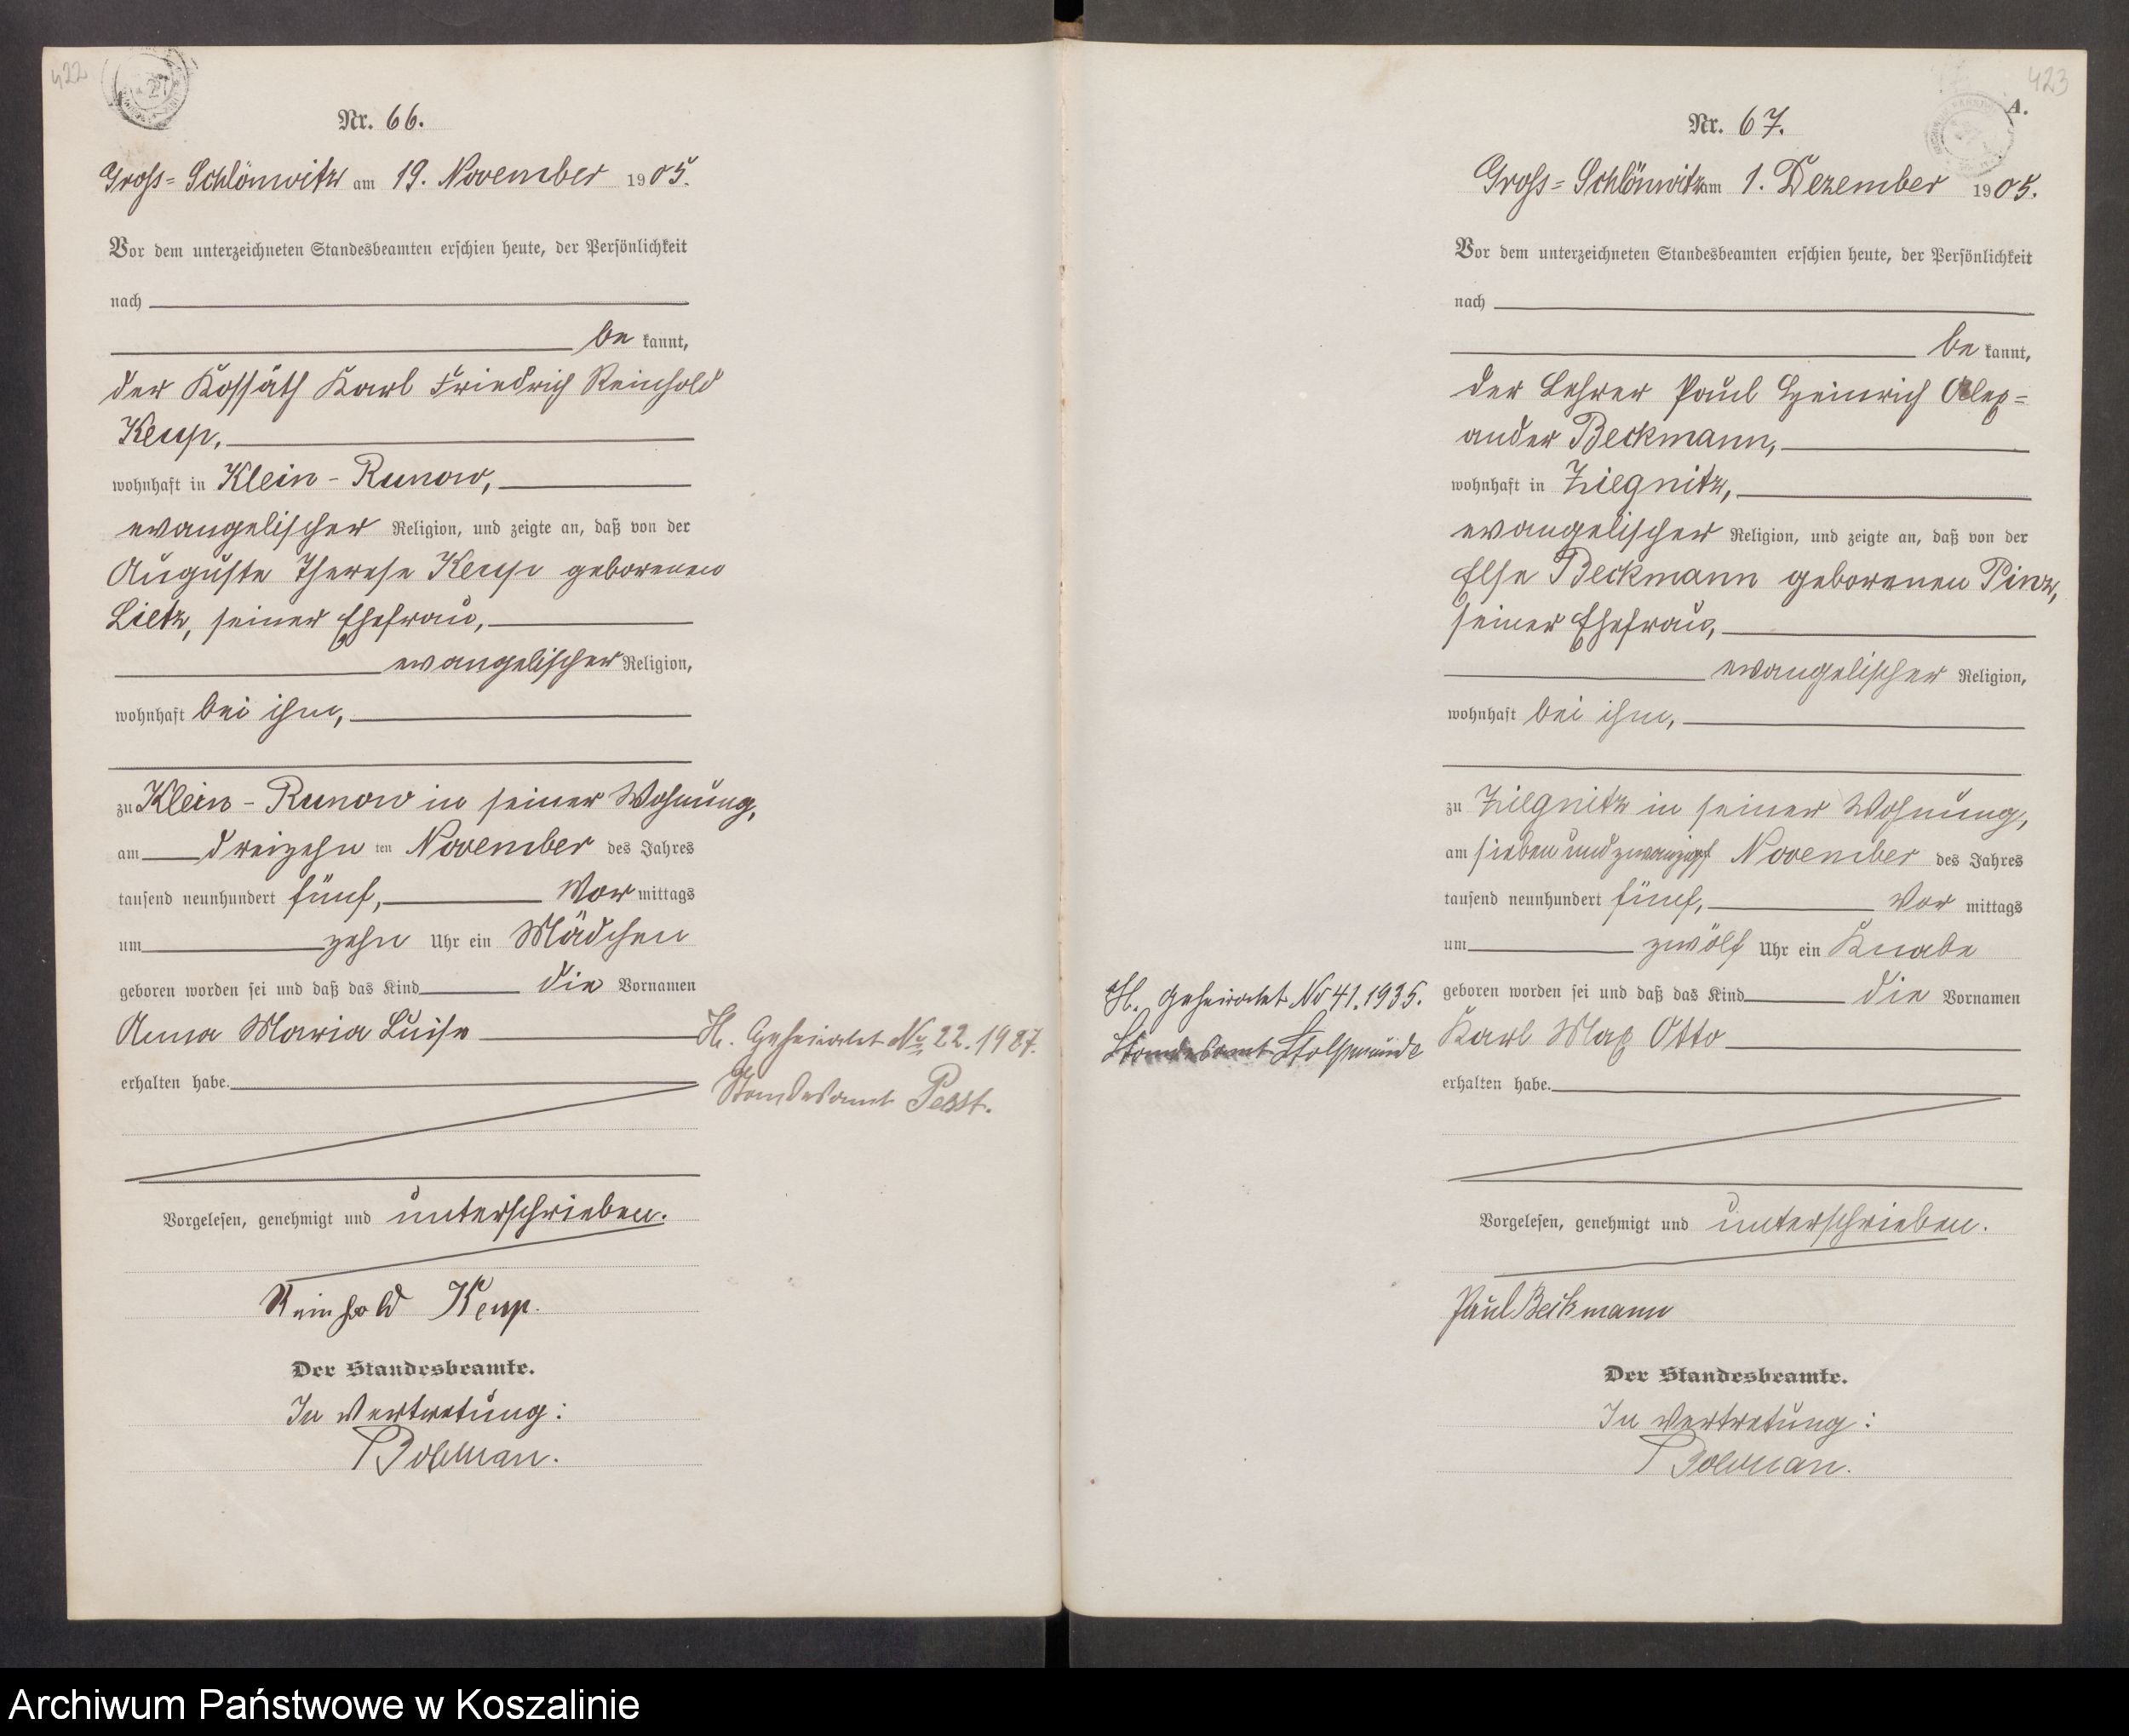 422
Nr. 66.
Gross=Schlönwitz am 19. November 1905.
Vor dem unterzeichneten Standesbeamten erschien heute, der Persönlichkeit
nach
be kannt,
der Kossäth Karl Friedrich Reinhold
wohnhaft in Klein-Runow,
evangelischer Religion, und zeigte an, daß von der
Auguste Therese geborenen
Lietz, seiner Ehefrau,
evangelischer Religion,
wohnhaft bei ihm,
zu Klein-Runow in seiner Wohnung,
am dreizehn ten November des Jahres
tausend neunhundert fünf, Vor mittags
um zehn Uhr ein Mädchen
geboren worden sei und daß das Kind die Vornamen
Anna Maria Luise
erhalten habe.
H. Geheiratet No 22. 1927.
Standesamt
Vorgelesen, genehmigt und unterschrieben.
Reinhold
Der Standesbeamte.
In Vertretung:
423
A.
Nr. 67.
Gross=Schlönwitz am 1. Dezember 1905.
Vor dem unterzeichneten Standesbeamten erschien heute, der Persönlichkeit
nach
be kannt,
der Lehrer Paul Heinrich Alex=
ander Beckmann,
wohnhaft in Ziegnitz,
evangelischer Religion, und zeigte an, daß von der
Else Beckmann geborenen Pinz,
seiner Ehefrau,
evangelischer Religion,
wohnhaft bei ihm,
zu Ziegnitz in seiner Wohnung,
am siebenundzwanzigst November des Jahres
tausend neunhundert fünf, Vor mittags
um zwölf Uhr ein Knabe
geboren worden sei und daß das Kind die Vornamen
Karl Max Otto
erhalten habe.
H. Geheiratet No 41. 1935.
Standesamt Stolpmünde
Vorgelesen, genehmigt und unterschrieben.
Paul Beckmann
Der Standesbeamte.
In Vertretung:
Archiwum Państwowe w Koszalinie